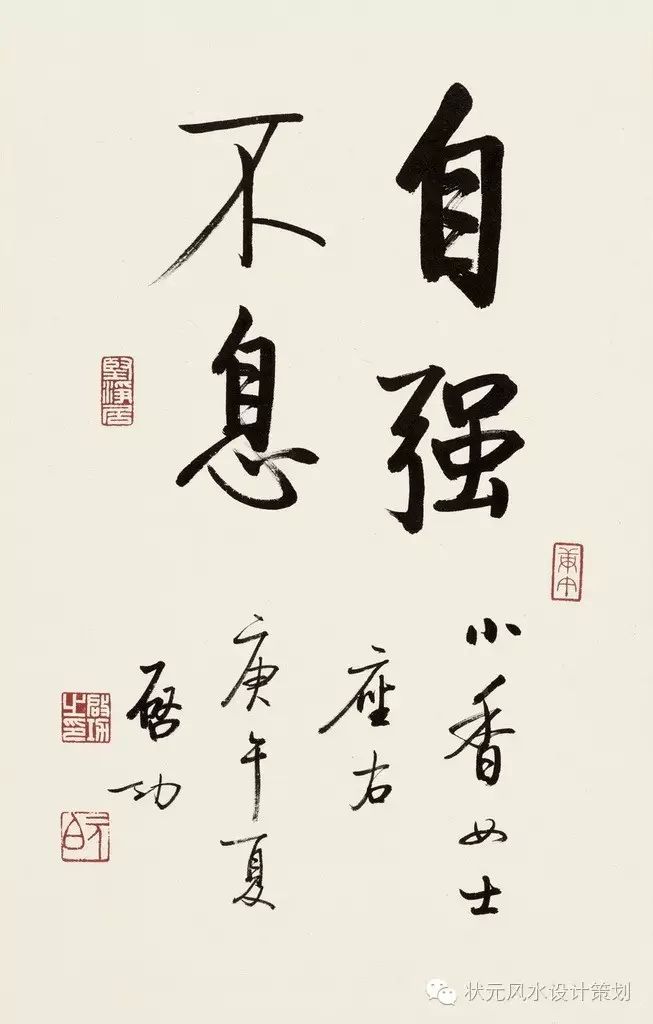 自强
不息
小香女士
座右
庚午夏
启功
坚净居
庚午
启功之印
元白
状元风水设计策划